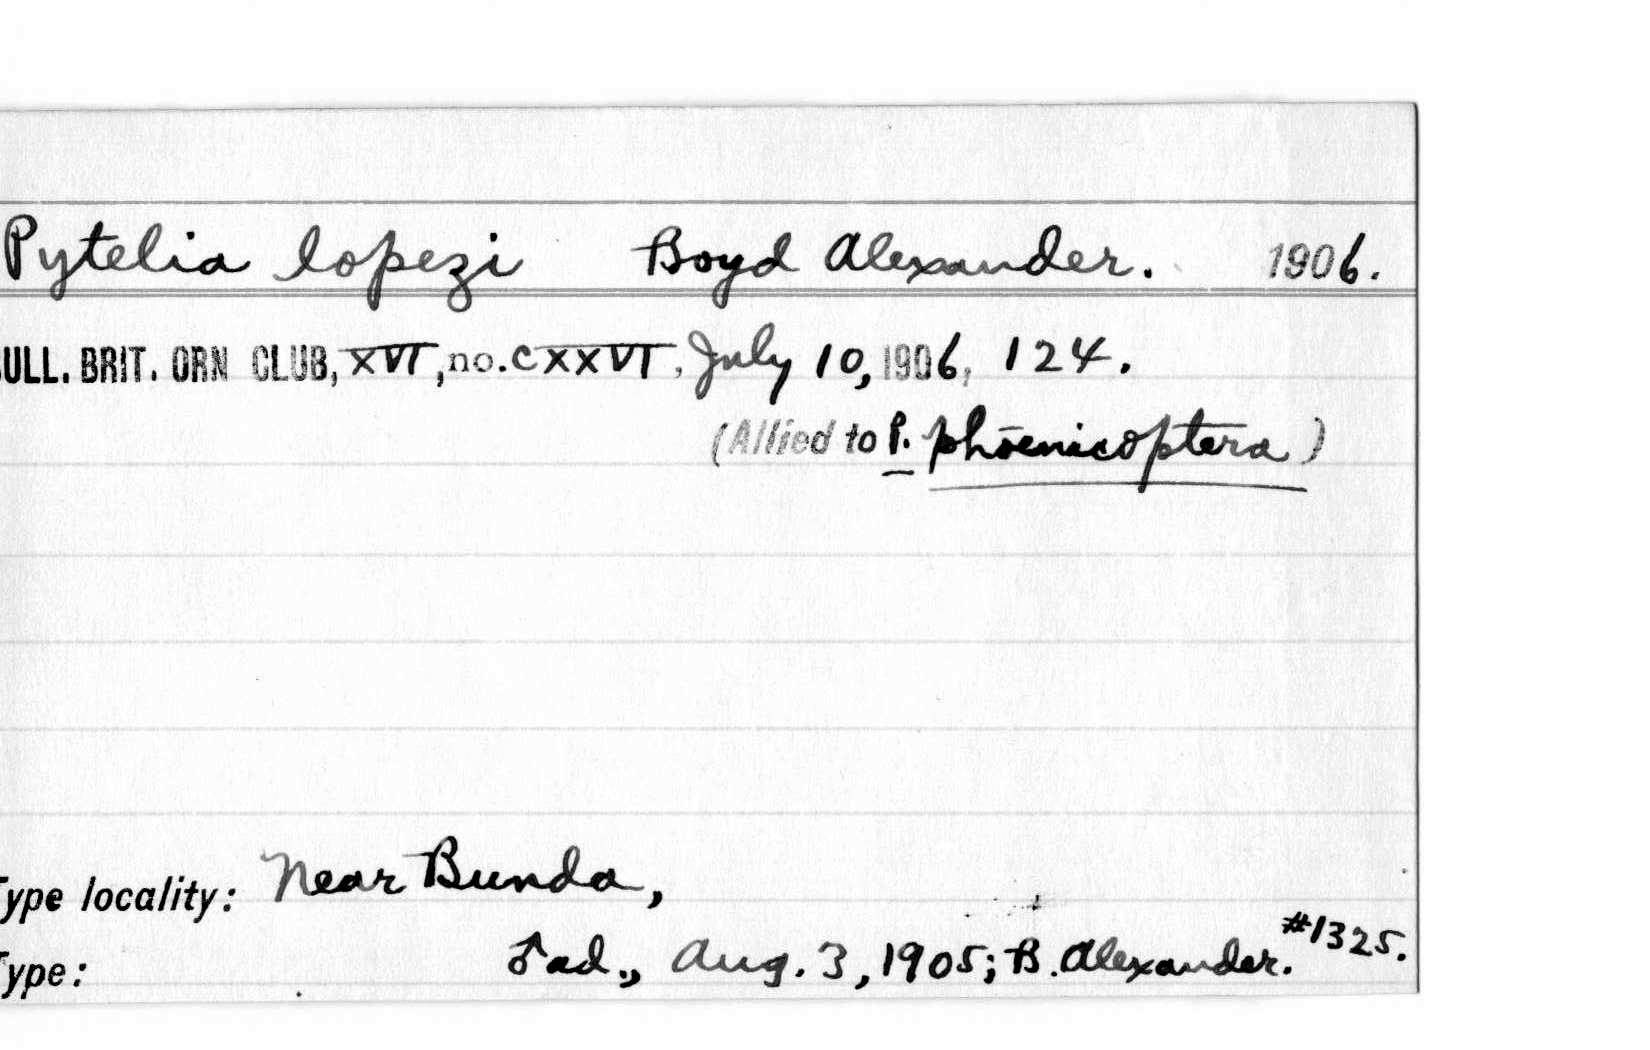 Pytelia lopezi Boyd Alexander. 1906.
ULL. BRIT. ORN CLUB, XVI, no. CXXVI, July 10, 1906, 124.
(Allied to P. phœnicoptera)
Type locality: Near Bunda,
Type: ♂ad., Aug. 3, 1905; B. Alexander. #1325.